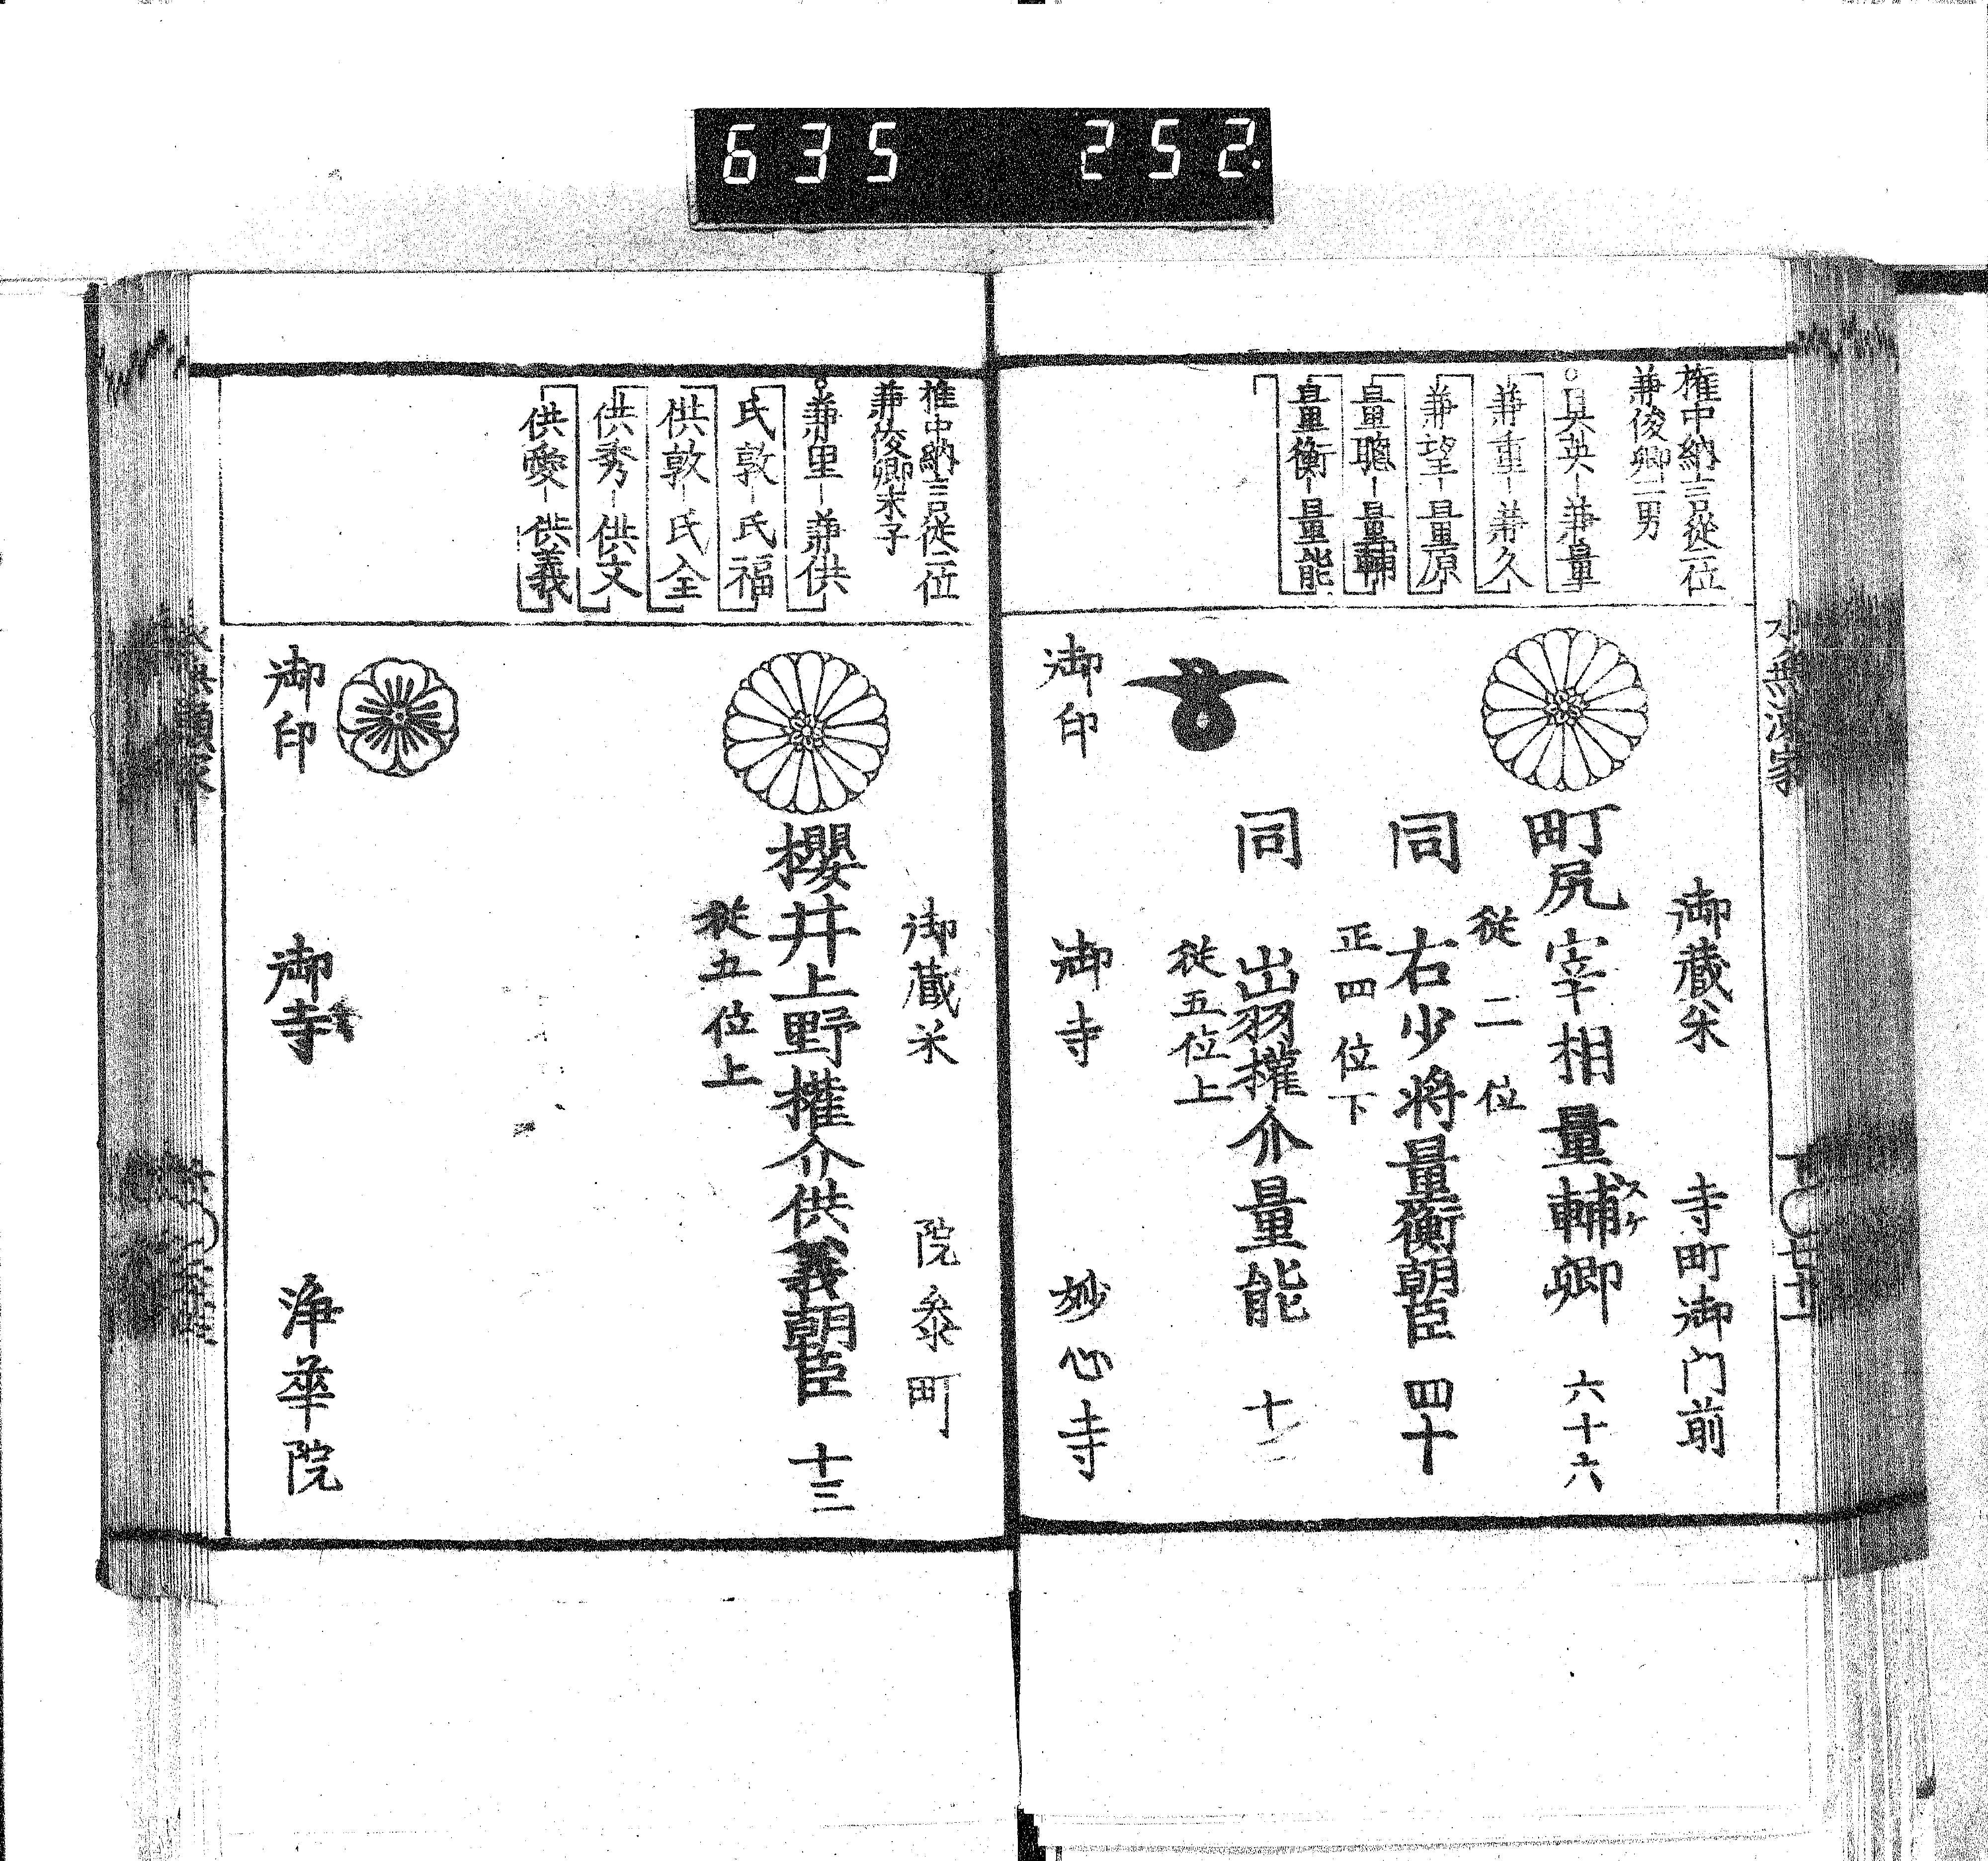 635 252.
權中納言從二位
兼俊卿二男
具英-兼量
兼重-兼久
兼望-量原
量聰-量輔
量衡-量能
御蔵米 寺町御門前
町尻宰相量輔卿 六十六
スケ
從二位
同 右少将量衡朝臣 四十
正四位下
同 出羽權介量能
從五位上
御印 御寺 妙心寺
權中納言從二位
兼俊卿末子
兼里-兼供
氏敦-氏福
供敦-氏全
供秀-供文
供愛-供義
御蔵米 院参町
櫻井上野權介供義朝臣 十三
從五位上
御印 御寺 浄華院